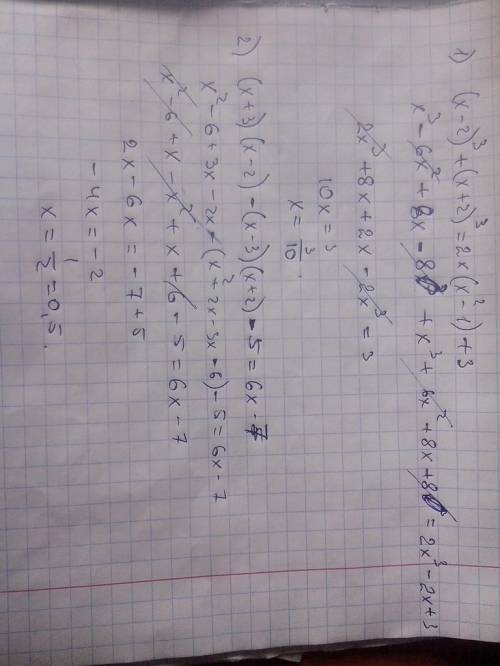 1) (x-2)³+(x+2)³=2x(x²-1)+3
x³-6x²+8x-8+x³+6x²+8x+8=2x³-2x+3
2x³+8x+2x-2x³=3
10x=3
x=3/10.
2) (x+3)(x-2)-(x-3)(x+2)-5=6x-7
x²-6+3x-2x-(x²+2x-3x-6)-5=6x-7
x²-6+x-x²+x+6-5=6x-7
2x-6x=-7+5
-4x=-2
x=1/2=0,5.